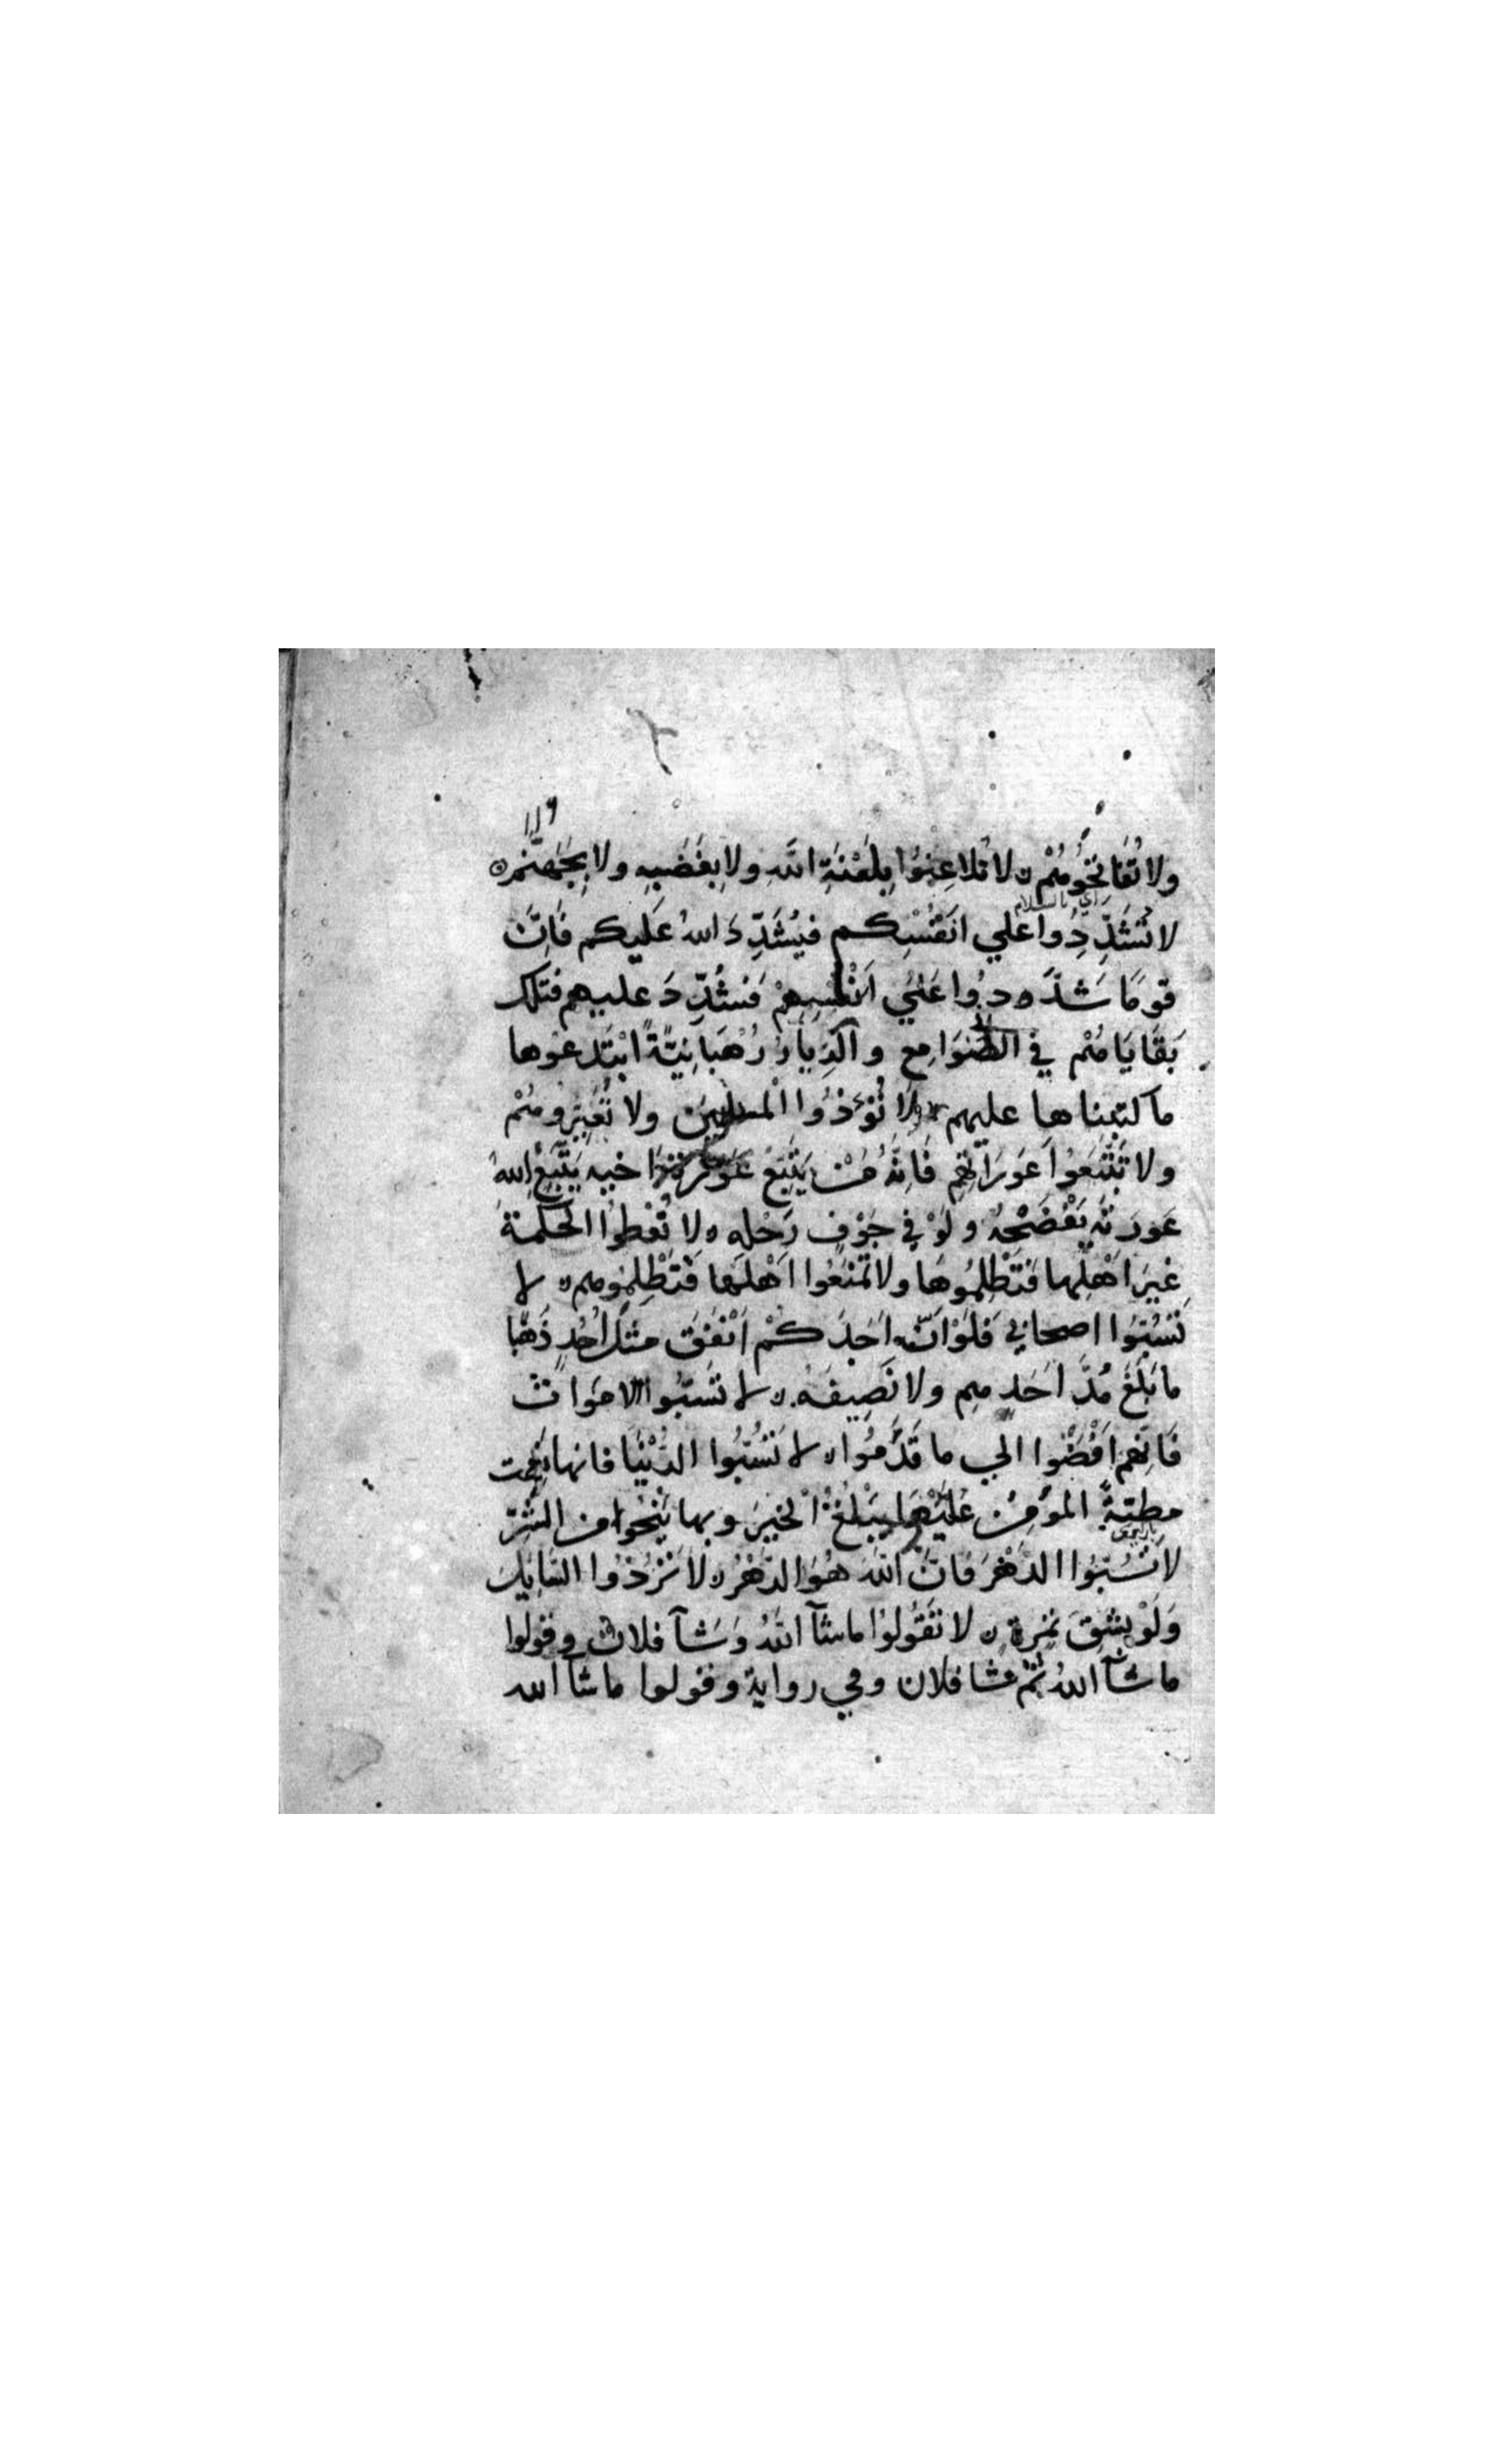 ولا تُفَاتِحُومُنْم ۞ لا تلاعِنُوا بِلَعْنَةِ اللَّهِ ولا بِغَضَبِهِ ولا بِجَهَنَّمَ ۞
اي بالسلام
لا تُشَدِّدُوا علي انفُسِكم فيُشَدِّدَ اللهُ عَلَيكم فَاِنَّ
قومًا شَدَّدُوا عَلَي انْفُسِهِمْ فَشُدِّدَ عليهم فتلك
بَقَايَا مُنْم في الصَّوَامِع والدِّيَارِ رُهْبَانِيَّةً ابْتَدَعُوها
ما كتبناها عليهم لا تُؤْذُوا المسلمين ولا تُعَيِّرومُنْم
ولا تَتَّبَعُوا عَوَرَاتِهِم فَاِنَّهُ مَنْ يَتَّبِعْ عَوْرَةَ اخيه يَتَّبِعُ اللهُ
عَورَتَهُ يَفْضَحْهُ ولَوْ في جَوْفِ رَحْلِهِ ۞ لا تُعْطُوا الحكمةَ
غيرَ اَهْلِهَا فَتَظْلِمُوهَا ولا تَمْنَعُوا اَهْلَهَا فَتَظْلِمُومم ۞ لا
تَسُبُّوا اصحابي فَلَوْ اَنَّ اَحَدَكُمْ اَنْفَقَ مثلَ اُحُدٍ ذَهَبًا
ما بَلَغَ مُدَّ اَحَدٍ مم ولا نَصِيفَهُ ۞ لا تَسُبُّوا الامَواتَ
فَاِنَّهم اَفْضَوْا الي ما قَدَّمُوا ۞ لا تَسُبُّوا الدُّنْيَا فانها نِعْمَت
مطيّةُ المؤمِنِ عَلَيْهَا يَبْلُغُ الخيرَ وبها يَنْجُوا من الشرِّ
لا تَسُبُّوا الدَّهْرَ فَاِنَّ اللهَ هُوَ الدَّهْرُ ۞ لا تَرُدُّوا السَّايِلَ
وَلَوْ بِشِقِّ تَمرةٍ ۞ لا تَقُولُوا ما شآ اللهُ وَشَآ فلان وقولوا
ما شآ اللهُ ثُمَّ شا فلان وفي رواية وقولوا ما شآ الله